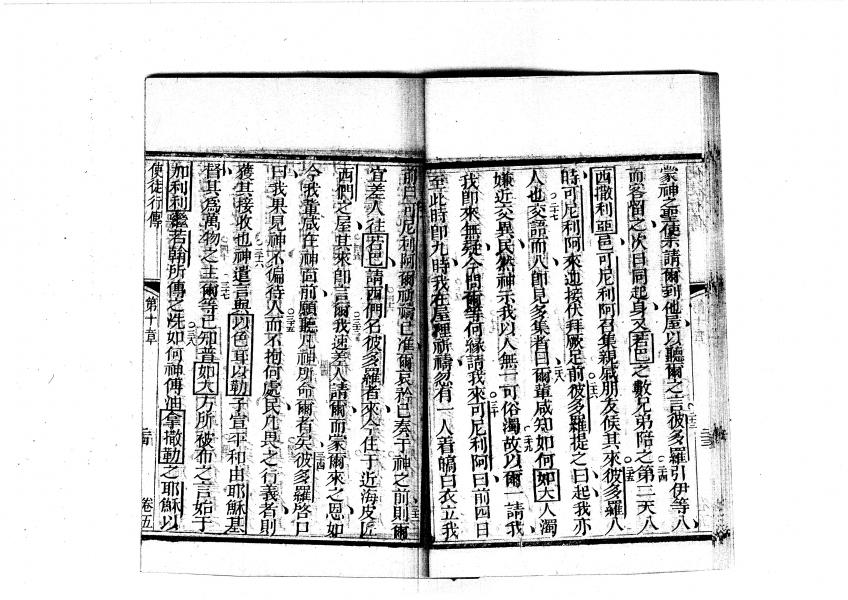 蒙神之聖使示請爾到他屋以聽爾之言彼多羅引伊等入
而客留之次日同起身又若巴之數兄弟陪之第二天入
西撒利亞邑可尼利阿召集親戚朋友候其來彼多羅入
時可尼利阿來迎接伏拜厥足前彼多羅提之曰起我亦
人也交語而入即見多集者曰爾輩咸知如何如大人濁
嫌近交異民然神示我以人無一可俗濁故以爾一請我
我即來無疑今問爾等何緣請我來可尼利阿曰前四日
至此時即九時我在屋裡祈禱忽有一人着皜白衣立我
前曰可尼利阿爾祈禱已准爾哀矜已奏于神之前則爾
宜差人往若巴請西們名彼多羅者來今住于近海皮匠
西們之屋其來即言爾我速差人請爾而蒙爾來之恩如
今我輩咸在神面前願聽凡神所命爾者矣彼多羅啓口
曰我果見神不偏待人而不拘何處民凡畏之行義者則
獲其接收也神遣言與以色耳以勒子宣平和由耶穌基
督其爲萬物之主爾等已知昔如大方所被布之言始于
加利利繼若翰所傳之洗如何神傅油拿撒勒之耶穌以
使徒行傳
第十章
卷五